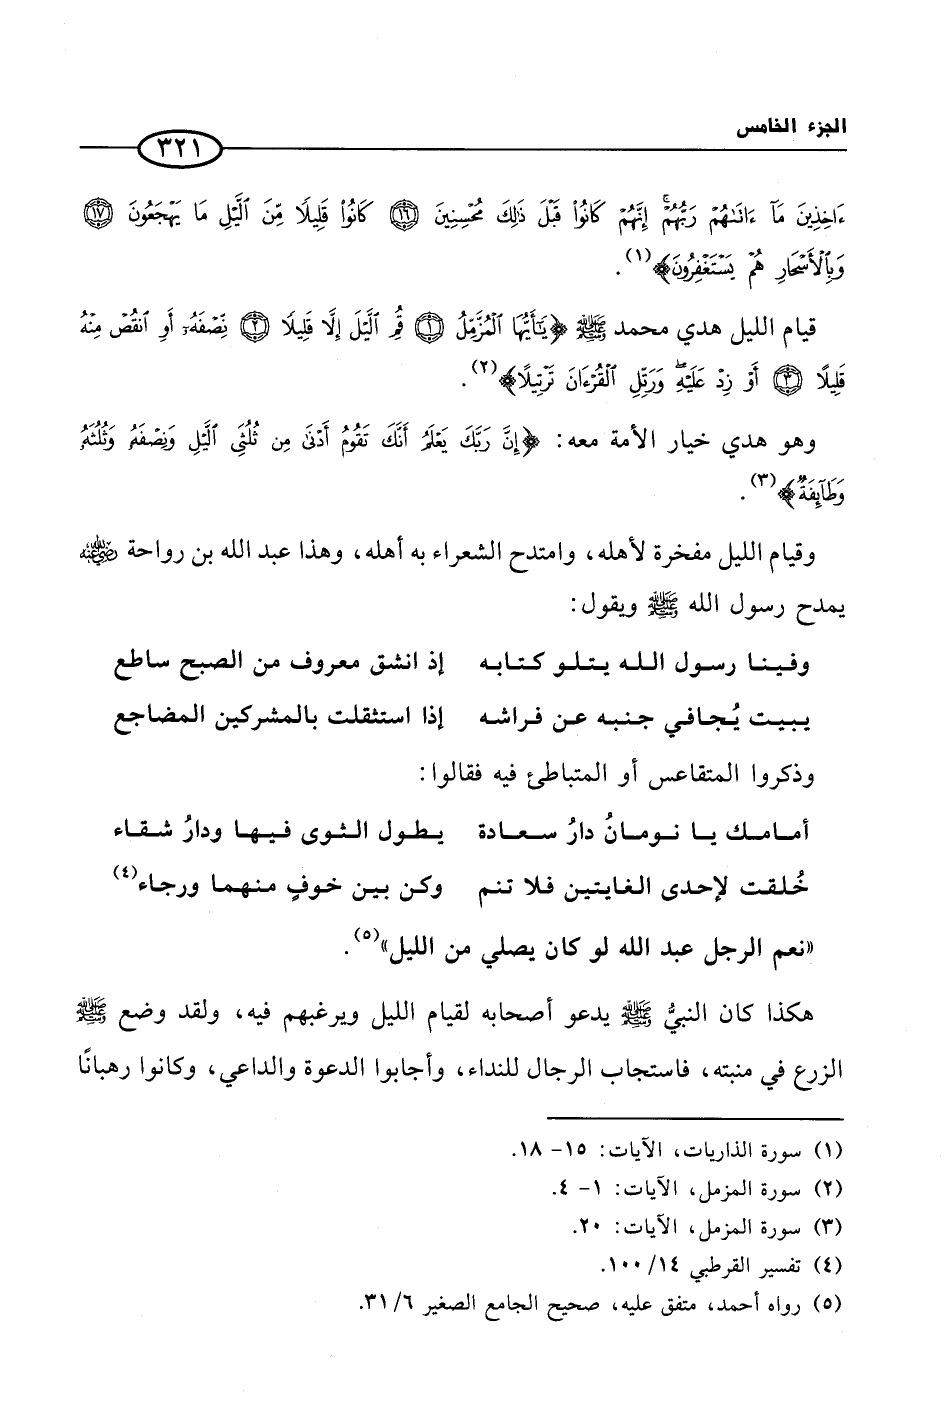 الجزء الخامس
٣٢١
ءَاخِذِينَ مَآ ءَاتَىٰهُمْ رَبُّهُمْ ۚ إِنَّهُمْ كَانُوا۟ قَبْلَ ذَٰلِكَ مُحْسِنِينَ ۝١٦ كَانُوا۟ قَلِيلًا مِّنَ ٱلَّيْلِ مَا يَهْجَعُونَ ۝١٧
وَبِٱلْأَسْحَارِ هُمْ يَسْتَغْفِرُونَ﴾(١).
قيام الليل هدي محمد ﷺ ﴿يَٰٓأَيُّهَا ٱلْمُزَّمِّلُ ۝١ قُمِ ٱلَّيْلَ إِلَّا قَلِيلًا ۝٢ نِّصْفَهُۥٓ أَوِ ٱنقُصْ مِنْهُ
قَلِيلًا ۝٣ أَوْ زِدْ عَلَيْهِ وَرَتِّلِ ٱلْقُرْءَانَ تَرْتِيلًا﴾(٢).
وهو هدي خيار الأمة معه: ﴿إِنَّ رَبَّكَ يَعْلَمُ أَنَّكَ تَقُومُ أَدْنَىٰ مِن ثُلُثَىِ ٱلَّيْلِ وَنِصْفَهُۥ وَثُلُثَهُۥ
وَطَآئِفَةٌ﴾(٣).
وقيام الليل مفخرة لأهله، وامتدح الشعراء به أهله، وهذا عبد الله بن رواحة رضي الله عنه
يمدح رسول الله ﷺ ويقول:
وفينا رسول الله يتلو كتابه إذ انشق معروف من الصبح ساطع
يبيت يُجافي جنبه عن فراشه إذا استثقلت بالمشركين المضاجع
وذكروا المتقاعس أو المتباطئ فيه فقالوا:
أمامك يا نومانُ دارُ سعادة يطول الثوى فيها ودارُ شقاء
خُلقت لإحدى الغايتين فلا تنم وكن بين خوفٍ منهما ورجاء(٤)
«نعم الرجل عبد الله لو كان يصلي من الليل»(٥).
هكذا كان النبيُّ ﷺ يدعو أصحابه لقيام الليل ويرغبهم فيه، ولقد وضع ﷺ
الزرع في منبته، فاستجاب الرجال للنداء، وأجابوا الدعوة والداعي، وكانوا رهبانًا
(١) سورة الذاريات، الآيات: ١٥- ١٨.
(٢) سورة المزمل، الآيات: ١- ٤.
(٣) سورة المزمل، الآيات: ٢٠.
(٤) تفسير القرطبي ١٤/ ١٠٠.
(٥) رواه أحمد، متفق عليه، صحيح الجامع الصغير ٦/ ٣١.